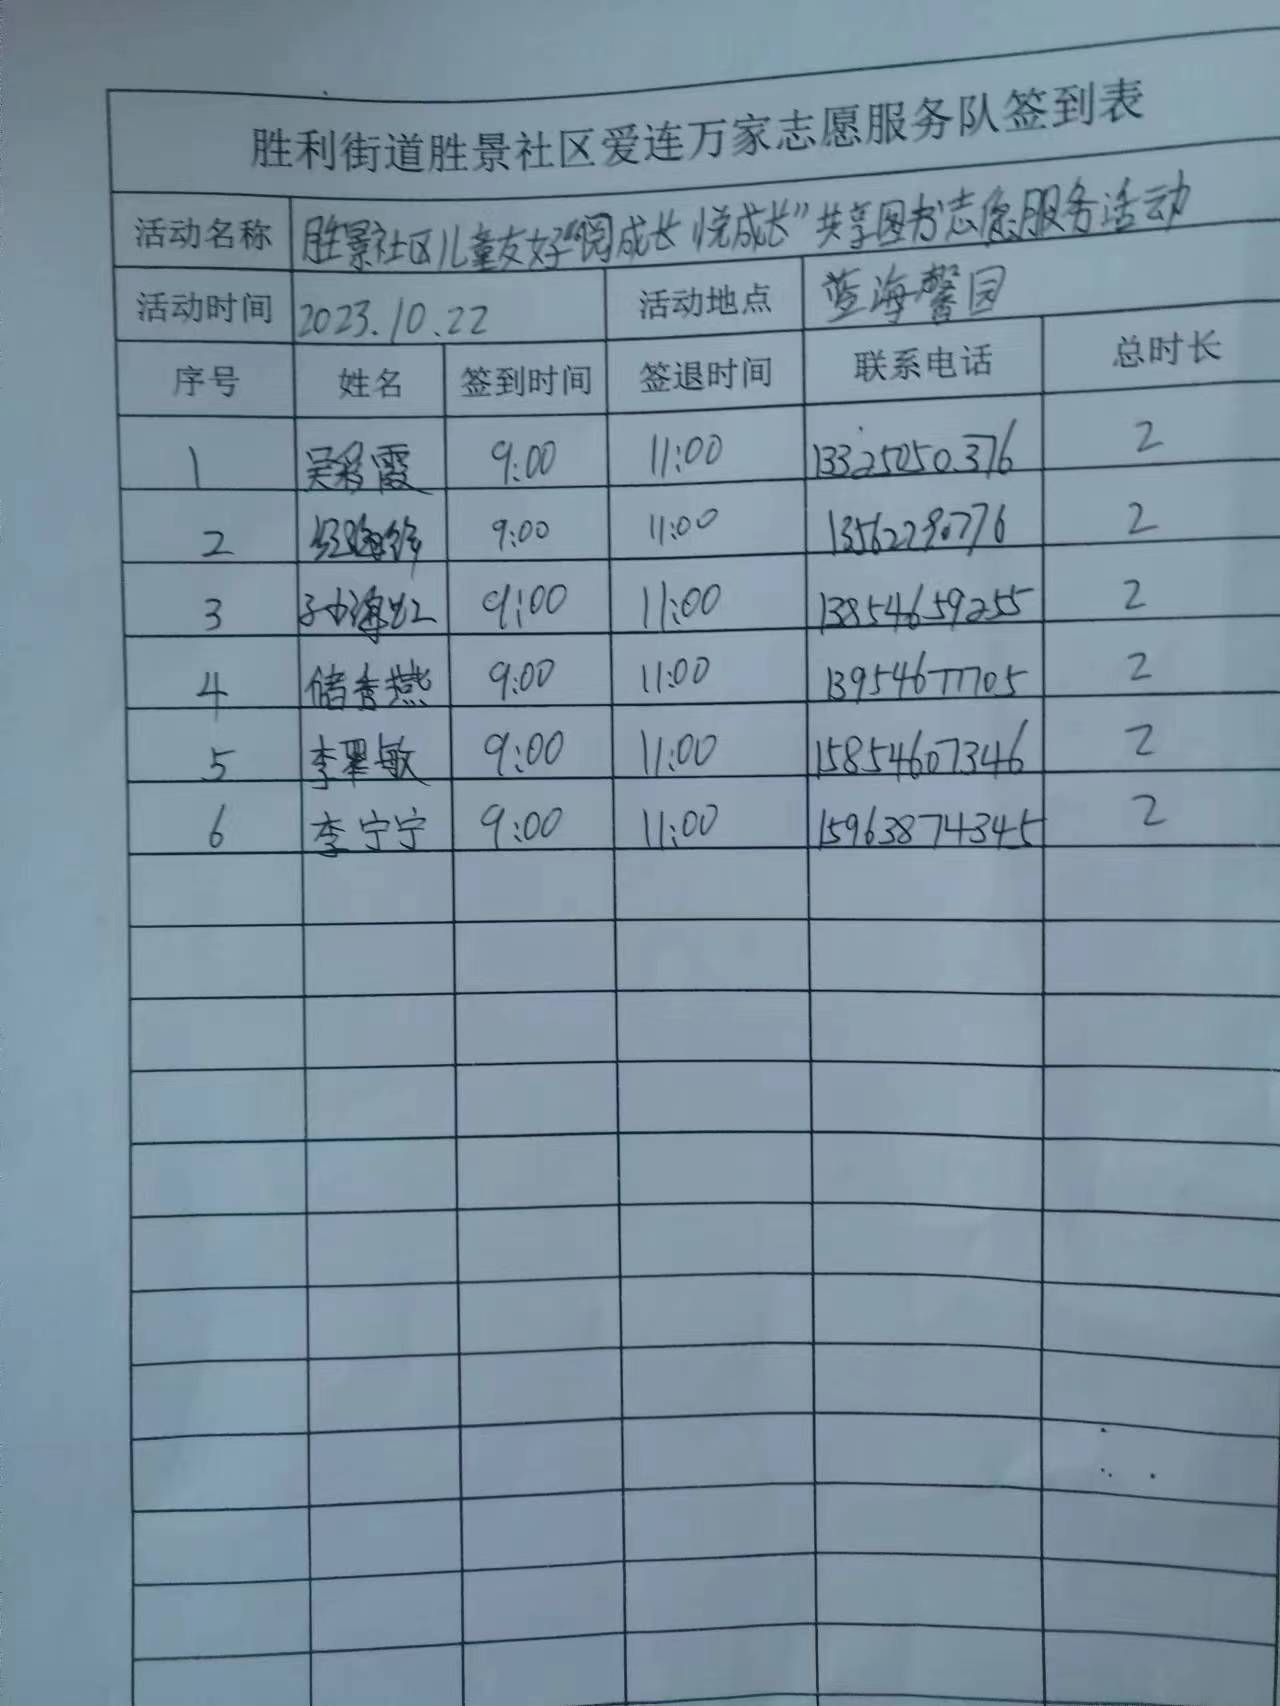 胜利街道胜景社区爱连万家志愿服务队签到表
活动名称 胜景社区儿童友好“阅成长 悦成长”共享图书志愿服务活动
活动时间 2023.10.22 活动地点 蓝海馨园
序号 姓名 签到时间 签退时间 联系电话 总时长
1 吴彩霞 9:00 11:00 13325050376 2
2 9:00 11:00 2
3 孙海红 9:00 11:00 13854659255 2
4 储秀燕 9:00 11:00 13954677705 2
5 李翠敏 9:00 11:00 15854607346 2
6 李宁宁 9:00 11:00 15963874345 2